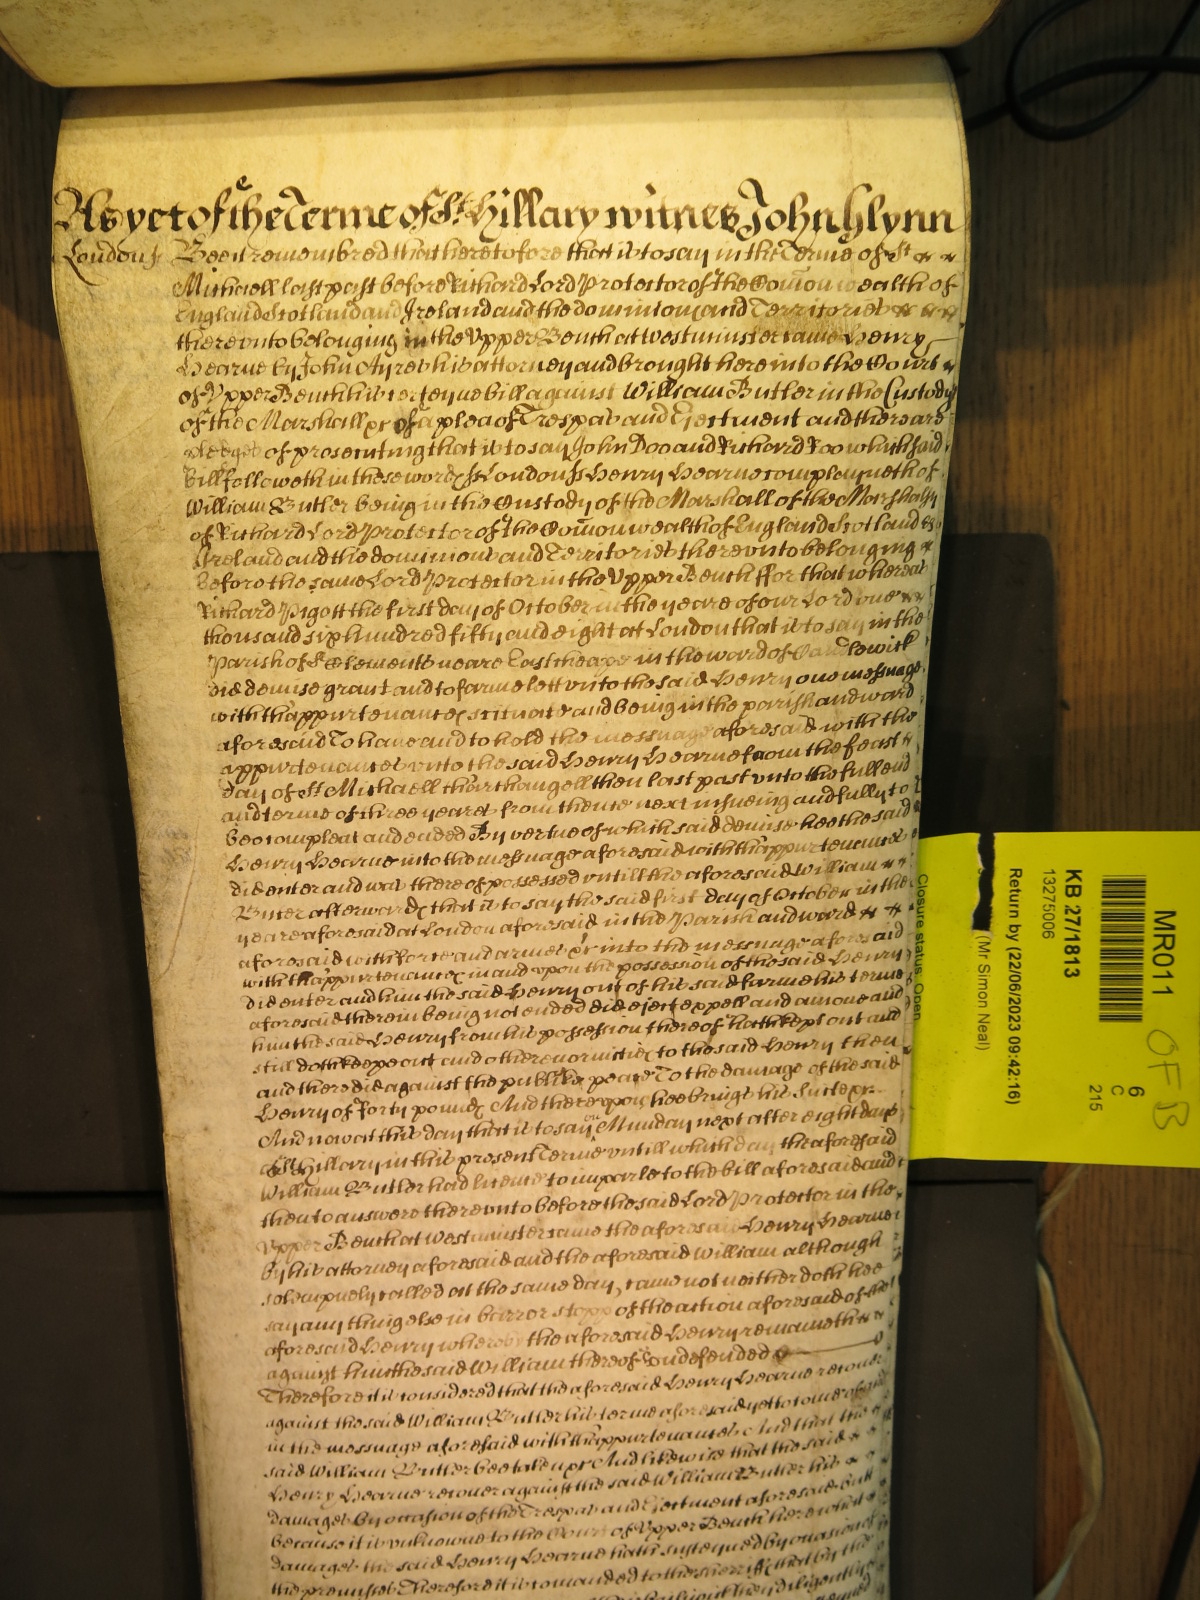 As yet of the Terme of St Hillary witnes John Glynn
London ss Bee it remembred that heretofore that is to say in the Terme of St
Michaell last past before Richard Lord Protector of the Com̄on wealth of
England Scotland and Ireland and the dominions and Territories
therevnto belonging in the Vpper Bench at westminster came Henry
Hearne by John Ayres his attorney and brought here into the Court
of Vpper Bench his certeyne bill against William Butler in the Custody
of the Marshall &c of a plea of Trespas and Ejectment and there are
pledges of prosecuting that is to say John Doo and Richard Roo which said
Bill followeth in these words ss London ss Henry Hearne compleyneth of
William Butler being in the Custody of the Marshall of the Marshalsy
of Richard Lord Protector of the Com̄on wealth of England Scotland &
Ireland and the dominions and Territories therevnto belonging
before the same Lord Protector in the Vpper Bench ffor that whereas
Richard Pigott the first day of October in the yeare of our Lord one
thousand six hundred fifty and eight at London that is to say in the
parish of St Clements neare Eastcheape in the ward of Candlewick
did demise grant and to farme lett vnto the said Henry one messuage
with thappurtenances scituate and being in the parish and ward
aforesaid To haue and to hold the messuage aforesaid with the
appurtenances vnto the said Henry Hearne from the feast
day of St Michaell tharchangell then last past vnto the full end
and terme of three yeares from thence next insueing and fully to
bee compleat and ended By vertue of which said demise hee the said
Henry Hearne into the messuage aforesaid with thappurtenances
did enter and was thereof possessed vntill the aforesaid William
Butler afterwards that is to say the said first day of October in the
yeare aforesaid at London aforesaid in the Parish and ward
aforesaid with force and armes &c into the messuage aforesaid
with thappurtenances in and vpon the possession of the said Henry
did enter and him the said Henry out of his said farme his terme
aforesaid therein being not ended did eject expell and amove and
him the said Henry from his possession thereof hath kept out and
still doth keepe out and other enormities to the said Henry then
and there did against the publike peace To the damage of the said
Henry of forty pounds And therevpon hee brings his suite &c
And now at this day that is to say on Munday next after eight days
of St Hillary in this present Terme vntill which day the aforesaid
William Butler had licence to imparle to the bill aforesaid and
then to answere therevnto before the said Lord Protector in the
Vpper Bench at westminster came the aforesaid Henry Hearne
by his attorney aforesaid and the aforesaid William although
solempnely called at the same day, came not neither doth hee
say any thing else in barr or stopp of the action aforesaid of the
aforesaid Henry whereby the aforesaid Henry remaineth
against him the said William thereof vndefended
Therefore it is considered that the aforesaid Henry Hearne recover
against the said William Butler his terme aforesaid yet to come of and
in the messuage aforesaid with thappurtenances And that the
said William Butler bee taken &c And likewise that the said
Henry Hearne recover against the said William Butler his
damages by occasion of the Trespas and Ejectment aforesaid but
because it is vnknowne to the Court of Vpper Bench here what
damages the said Henry Hearne hath susteyned by occasion of
the premisses Therefore it is comanded to the sherriffs that by the
diligently
MR011
6
C
215
OFB
KB 27/1813
13275006
Return by (22/06/2023 09:42:16)
(Mr Simon Neal)
Closure status: Open